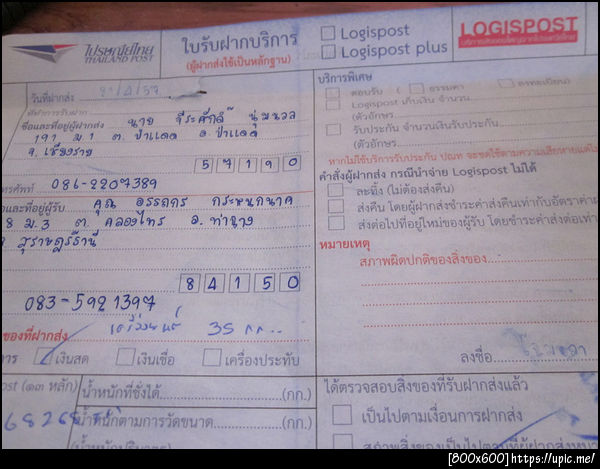 ไปรษณีย์ไทย
THAILAND POST
ใบรับฝากบริการ
(ผู้ฝากส่งใช้เป็นหลักฐาน)
Logispost
Logispost plus
LOGISPOST
วันที่ฝากส่ง
ที่ทำการรับฝาก
ชื่อและที่อยู่ผู้ฝากส่ง นาย จีระศักดิ์ นุ่มนวล
191 ม.1 ต. ป่าแดด อ. ป่าแดด
จ. เชียงราย
57190
ทรศัพท์ 086-2207389
อและที่อยู่ผู้รับ คุณ อรรถกร
8 ม.3 ต. คลองไทร อ. ท่าฉาง
สุราษฎร์ธานี
84150
083-5921397
ของที่ฝากส่ง 35 กก.
การ เงินสด เงินเชื่อ เครื่องประทับ
ost (๑๓ หลัก) น้ำหนักที่ชั่งได้ (กก.)
68268 น้ำหนักตามการวัดขนาด (กก.)
บริการพิเศษ
ตอบรับ ( ธรรมดา ลงทะเบียน)
Logispost เก็บเงิน จำนวน
(ตัวอักษร
รับประกัน จำนวนเงินรับประกัน
(ตัวอักษร
หากไม่ใช้บริการรับประกัน ปณท จะชดใช้ตามความเสียหายแต่ไ
คำสั่งผู้ฝากส่ง กรณีนำจ่าย Logispost ไม่ได้
ละทิ้ง (ไม่ต้องส่งคืน)
ส่งคืน โดยผู้ฝากส่งชำระค่าส่งคืนเท่ากับอัตราค่าฝ
ส่งต่อไปที่อยู่ใหม่ของผู้รับ โดยชำระค่าส่งต่อเท่า
หมายเหตุ
สภาพผิดปกติของสิ่งของ
ลงชื่อ
ได้ตรวจสอบสิ่งของที่รับฝากส่งแล้ว
เป็นไปตามเงื่อนการฝากส่ง
[800x600] https://upic.me/